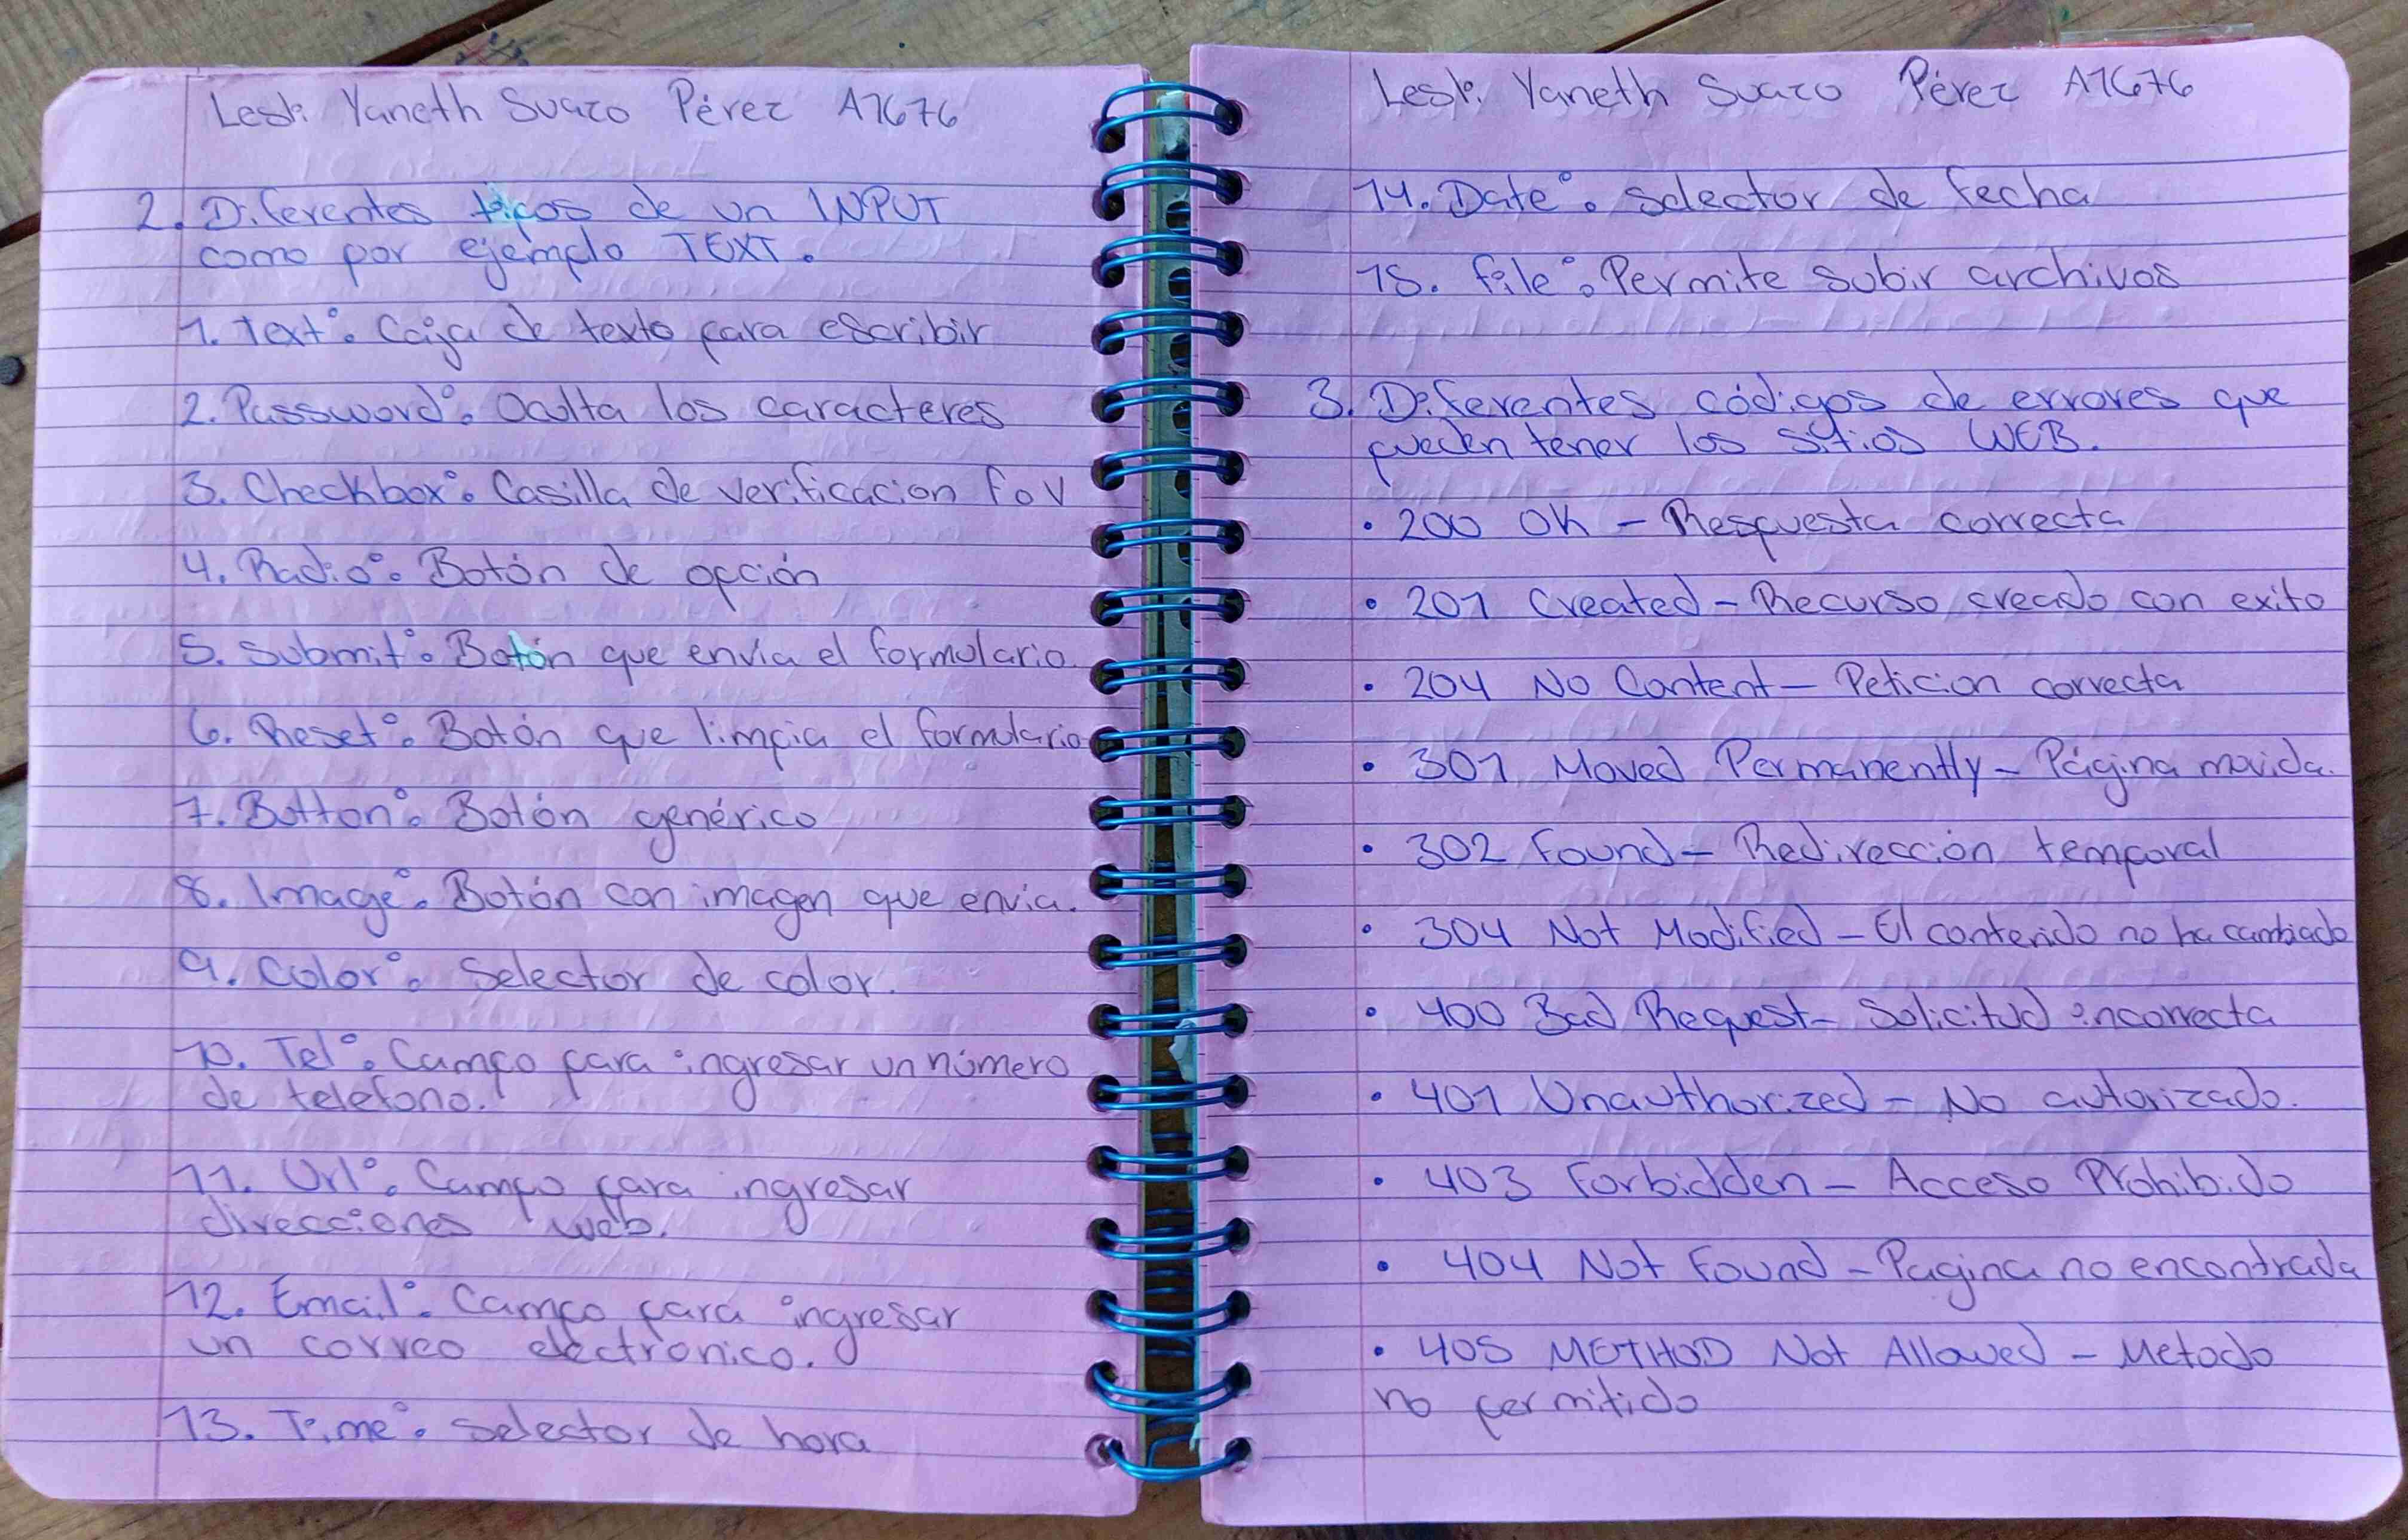 Lesli Yaneth Suazo Pérez A1676
2. Diferentes tipos de un INPUT
como por ejemplo TEXT.
1. Text: Caja de texto para escribir
2. Password: Oculta los caracteres
3. Checkbox: Casilla de verificacion F o V
4. Radio: Botón de opción
5. Submit: Botón que envía el formulario.
6. Reset: Botón que limpia el formulario
7. Button: Botón genérico
8. Image: Botón con imagen que envia.
9. Color: Selector de color.
10. Tel: Campo para ingresar un número
de telefono.
11. Url: Campo para ingresar
direcciones web.
12. Email: Campo para ingresar
un correo electronico.
13. Time: Selector de hora
Lesli Yaneth Suazo Pérez A1676
14. Date: Selector de fecha
15. File: Permite subir archivos
3. Diferentes códigos de errores que
pueden tener los sitios WEB.
• 200 OK - Respuesta correcta
• 201 Created - Recurso creado con exito
• 204 No Content - Peticion correcta
• 301 Moved Permanently - Página movida.
• 302 Found - Redirección temporal
• 304 Not Modified - El contenido no ha cambiado
• 400 Bad Request - Solicitud incorrecta
• 401 Unauthorized - No autorizado.
• 403 Forbidden - Acceso Prohibido
• 404 Not Found - Pagina no encontrada
• 405 METHOD Not Allowed - Metodo
no permitido